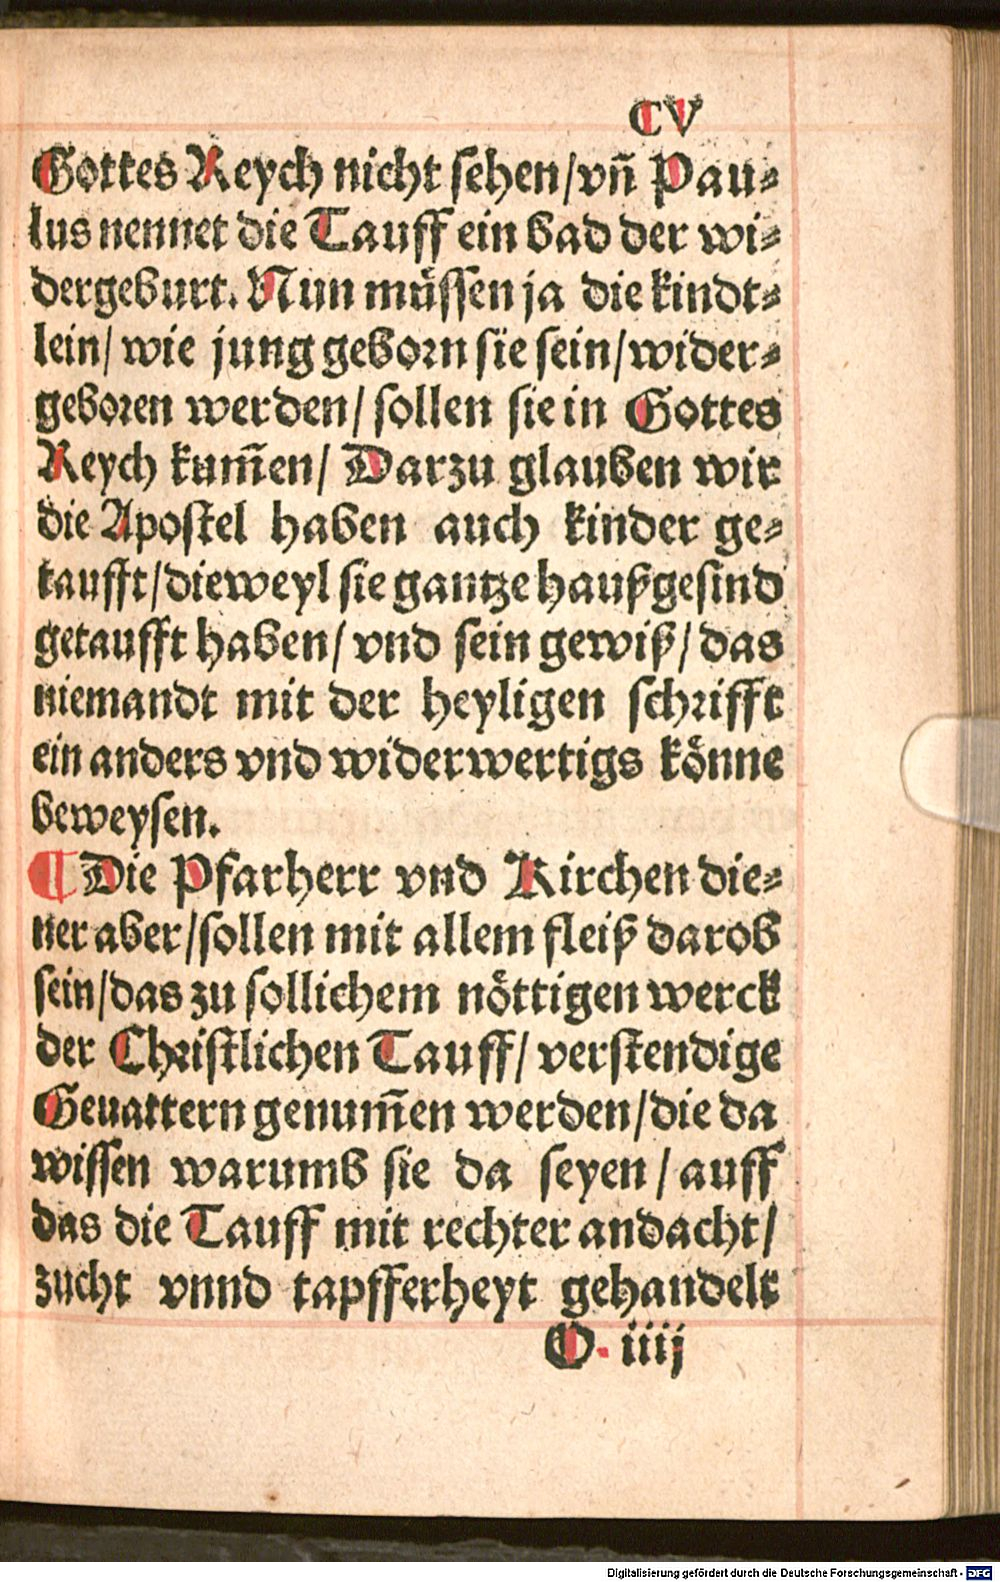 CV
Gottes Reych nicht sehen/vñ Pau⸗
lus nennet die Tauff ein bad der wi⸗
dergeburt. Nun müssen ja die kindt⸗
lein/ wie jung geborn sie sein/wider⸗
geboren werden/ sollen sie in Gottes
Reych kum̃en/ Darzu glauben wir
die Apostel haben auch kinder ge⸗
taufft/dieweyl sie gantze haußgesind
getaufft haben/ vnd sein gewiß/ das
niemandt mit der heyligen schrifft
ein anders vnd widerwertigs könne
beweysen.
¶ Die Pfarherr vnd Kirchen die⸗
ner aber/sollen mit allem fleiß darob
sein/das zu sollichem nöttigen werck
der Christlichen Tauff/ verstendige
Geuattern genum̃en werden/die da
wissen warumb sie da seyen/ auff
das die Tauff mit rechter andacht/
zucht vnnd tapfferheyt gehandelt
O. iiij
Digitalisierung gefördert durch die Deutsche Forschungsgemeinschaft - DFG